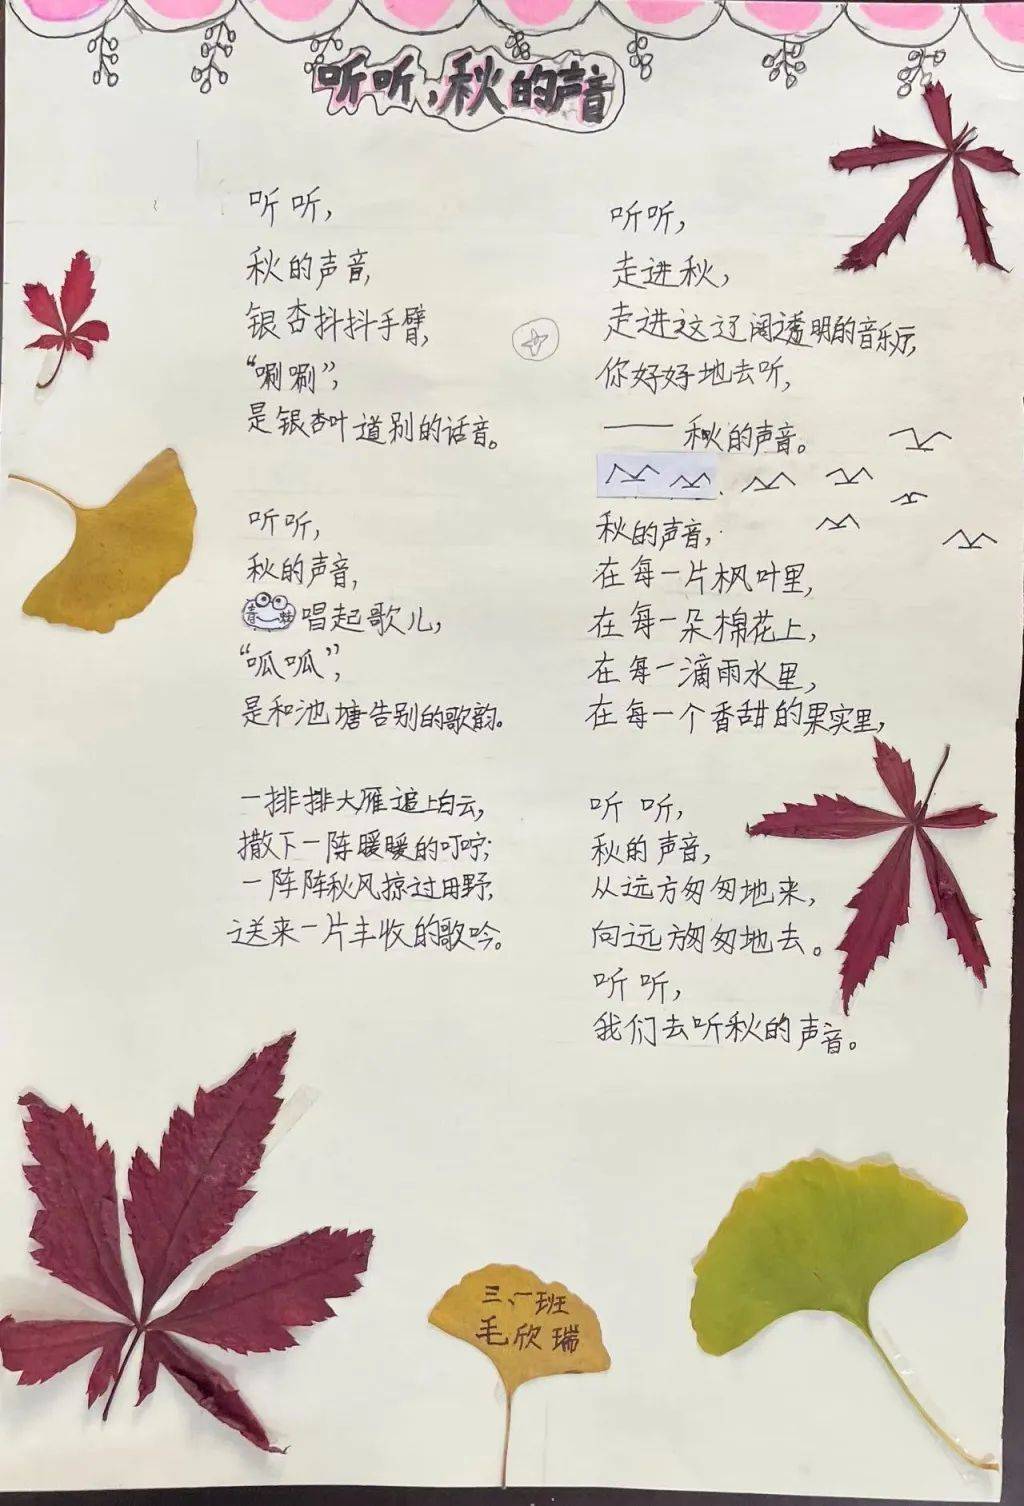 听听，秋的声音
听听，
秋的声音，
银杏抖抖手臂，
“唰唰”，
是银杏叶道别的话音。
听听，
秋的声音，
青蛙唱起歌儿，
“呱呱”，
是和池塘告别的歌韵。
一排排大雁追上白云，
撒下一阵暖暖的叮咛；
一阵阵秋风掠过田野，
送来一片丰收的歌吟。
听听，
走进秋，
走进这辽阔透明的音乐厅，
你好好地去听，
——秋的声音。
秋的声音，
在每一片枫叶里，
在每一朵棉花上，
在每一滴雨水里，
在每一个香甜的果实里，
听听，
秋的声音，
从远方匆匆地来，
向远方匆匆地去。
听听，
我们去听秋的声音。
三、一班
毛欣瑞